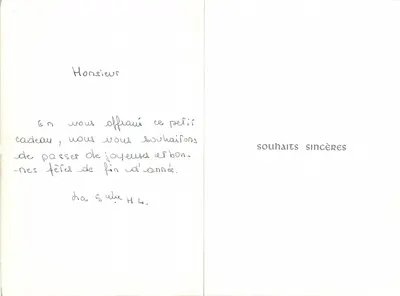 Monsieur
En vous offrant ce petit
cadeau, nous vous souhaitons
de passer de joyeuses et bon-
-nes fêtes de fin d'année.
La H 4.
SOUHAITS SINCÈRES